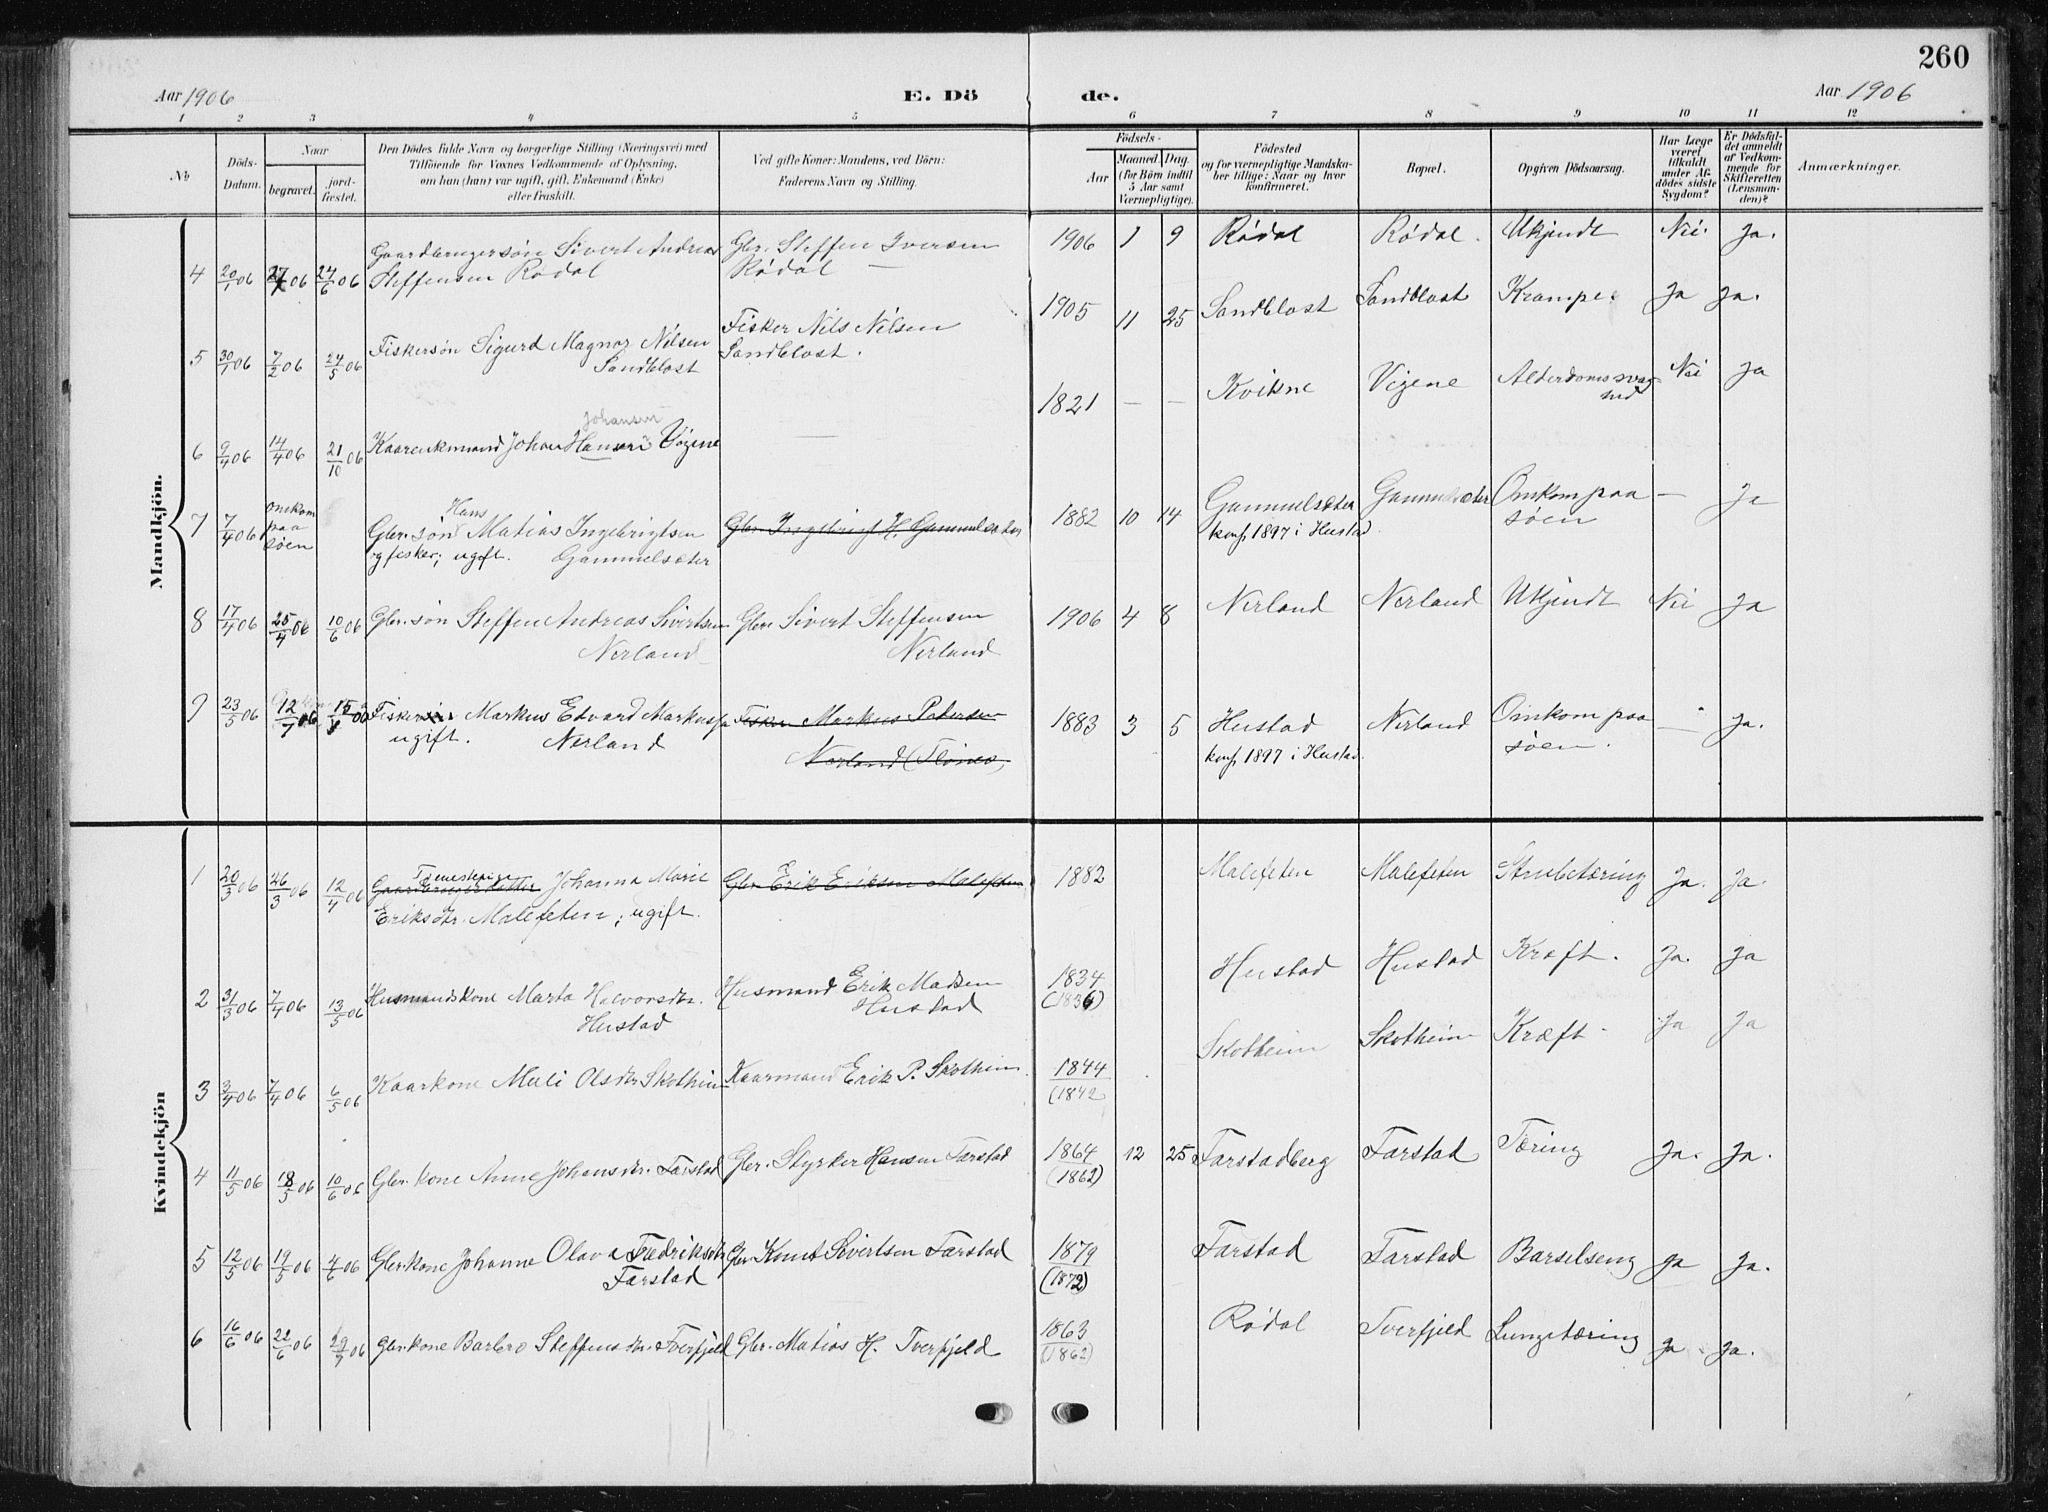 260
Aar 1906 E. Dö de. Aar 1906
1 2 3 4 5 6 7 8 9 10 11 12
№
Döds-Datum.
Naar
begravet.
jord-fæstet.
Den Dödes fulde Navn og borgerlige Stilling (Næringsvei) med
Tilföiende for Voxnes Vedkommende af Oplysning,
om han (hun) var ugift, gift, Enkemand (Enke)
eller fraskilt.
Ved gifte Koner: Mandens, ved Börn:
Faderens Navn og Stilling.
Födsels-
Aar
Maaned. Dag.
(for Börn indtil
5 Aar samt
Værnepligtige).
Födested
og for værnepligtige Mandska-
ber tillige: Naar og hvor
konfirmeret.
Bopæl.
Opgiven Dödsaarsag.
Har Læge
været
tilkaldt
under Af-
dödes sidste
Sygdom?
Er Dödsfal-
det anmeldt
af Vedkom-
mende for
Skifteretten
(Lensman-
den)?
Anmærkninger.
Mandkjön.
4 20/1 06 27/1 06 24/6 06 Gaardbrugersön Sivert Andreas Gbr. Steffen Iversen 1906 1 9 Rödal Rödal. Ukjendt Nei. Ja.
Steffensen Rödal Rödal —
5 30/1 06 7/2 06 24/5 06 Fiskersön Sigurd Magnor Nilsen Fisker Nils Nilsen 1905 11 25 Sandblost Sandblost Krampe. Ja Ja.
Sandblost Sandblost.
Johansen
6 9/4 06 14/4 06 21/10 06 Kaarenkemand Johan Hansen Vögene — 1821 — — Kvikne Vögene Alderdomssvag- Nei Ja
hed
Hans
7 7/4 06 Omkom Gbr. sön Matias Ingebrigtsen Gbr. Ingebrigt H. Gammelsæter 1882 10 14 Gammelsæter Gammelsæter Omkom paa — Ja
paa og fisker; ugift. Gammelsæter konf. 1897 i Hustad söen
söen
8 17/4 06 25/4 06 10/6 06 Gbr. sön Steffen Andreas Sivertsen Gbr. Sivert Steffensen 1906 4 8 Nerland Nerland Ukjendt Nei Ja
Nerland Nerland
9 23/5 06 12/7 06 15/ 06 Fiskersön Markus Edvard Markussen Fisker Markus Petersen 1883 3 5 Hustad Nerland Omkom paa — Ja.
ugift. Nerland Nerland konf. 1897 i Hustad. söen.
Kvindekjön
Tjenestepige
1 20/3 06 26/3 06 12/4 06 Gaardbrugerdatter Johanna Marie Gbr. Erik Eriksen Malefeten 1882 Malefeten Malefeten Strubetæring Ja. Ja.
Eriksdtr. Malefeten; ugift.
2 31/3 06 7/4 06 13/5 06 Husmandskone Marta Halvorsdtr. Husmand Erik Madsen 1834 Hustad Hustad Kræft. Ja. Ja
Hustad Hustad (1836)
3 3/4 06 7/4 06 6/5 06 Kaarkone Muli Olsdtr Skotheim Kaarmand Erik P. Skotheim 1844 Skotheim Skotheim Kræft. Ja Ja
(1842
4 11/5 06 18/5 06 10/6 06 Gbr. kone Anne Johansdtr. Farstad Gbr. Styrker Hansen Farstad 1864 12 25 Farstadberg Farstad Tæring Ja. Ja.
(1862)
5 12/5 06 19/5 06 4/6 06 Gbr. kone Johanne Olava Fredriksdtr Gbr Knut Sivertsen Farstad 1879 Farstad Farstad Barselseng Ja Ja.
Farstad (1872)
6 16/6 06 22/6 06 29/7 06 Gbr. kone Barbro Steffensdtr. Tverfjeld Gbr. Matias H. Tverfjeld 1863 Rödal Tverfjeld Lungetæring Ja. Ja.
(1862)